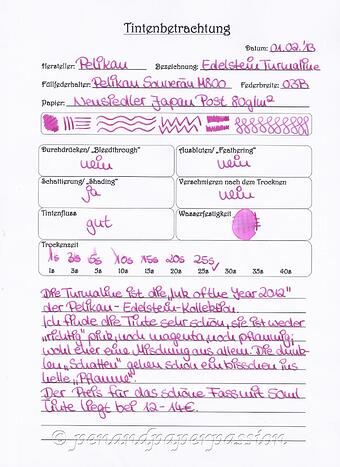 Tintenbetrachtung
Datum: 01.02.'13
Hersteller: Pelikan Bezeichnung: Edelstein Turmaline
Füllfederhalter: Pelikan Souverän M800 Federbreite: O3B
Papier: Neusiedler Japan Post 80g/m²
Durchdrücken/ „Bleedthrough" Ausbluten/ „Feathering"
nein nein
Schattierung/ „Shading" Verschmieren nach dem Trocknen
ja nein
Tintenfluss Wasserfestigkeit
gut
Trockenzeit
1s 3s 5s 10s 15s 20s 25s ✓
1s 3s 5s 10s 15s 20s 25s 30s 35s 40s
Die Turmaline ist die „Ink of the Year 2012"
der Pelikan-Edelstein-Kollektion.
Ich finde die Tinte sehr schön; sie ist weder
„richtig" pink, noch magenta, noch pflaumig;
wohl eher eine Mischung aus allem. Die dunk-
len „Schatten" gehen schon ein bisschen ins
helle „Pflaume".
Der Preis für das schöne Fass mit 50ml
Tinte liegt bei 12-14€.
© penandpaperpassion